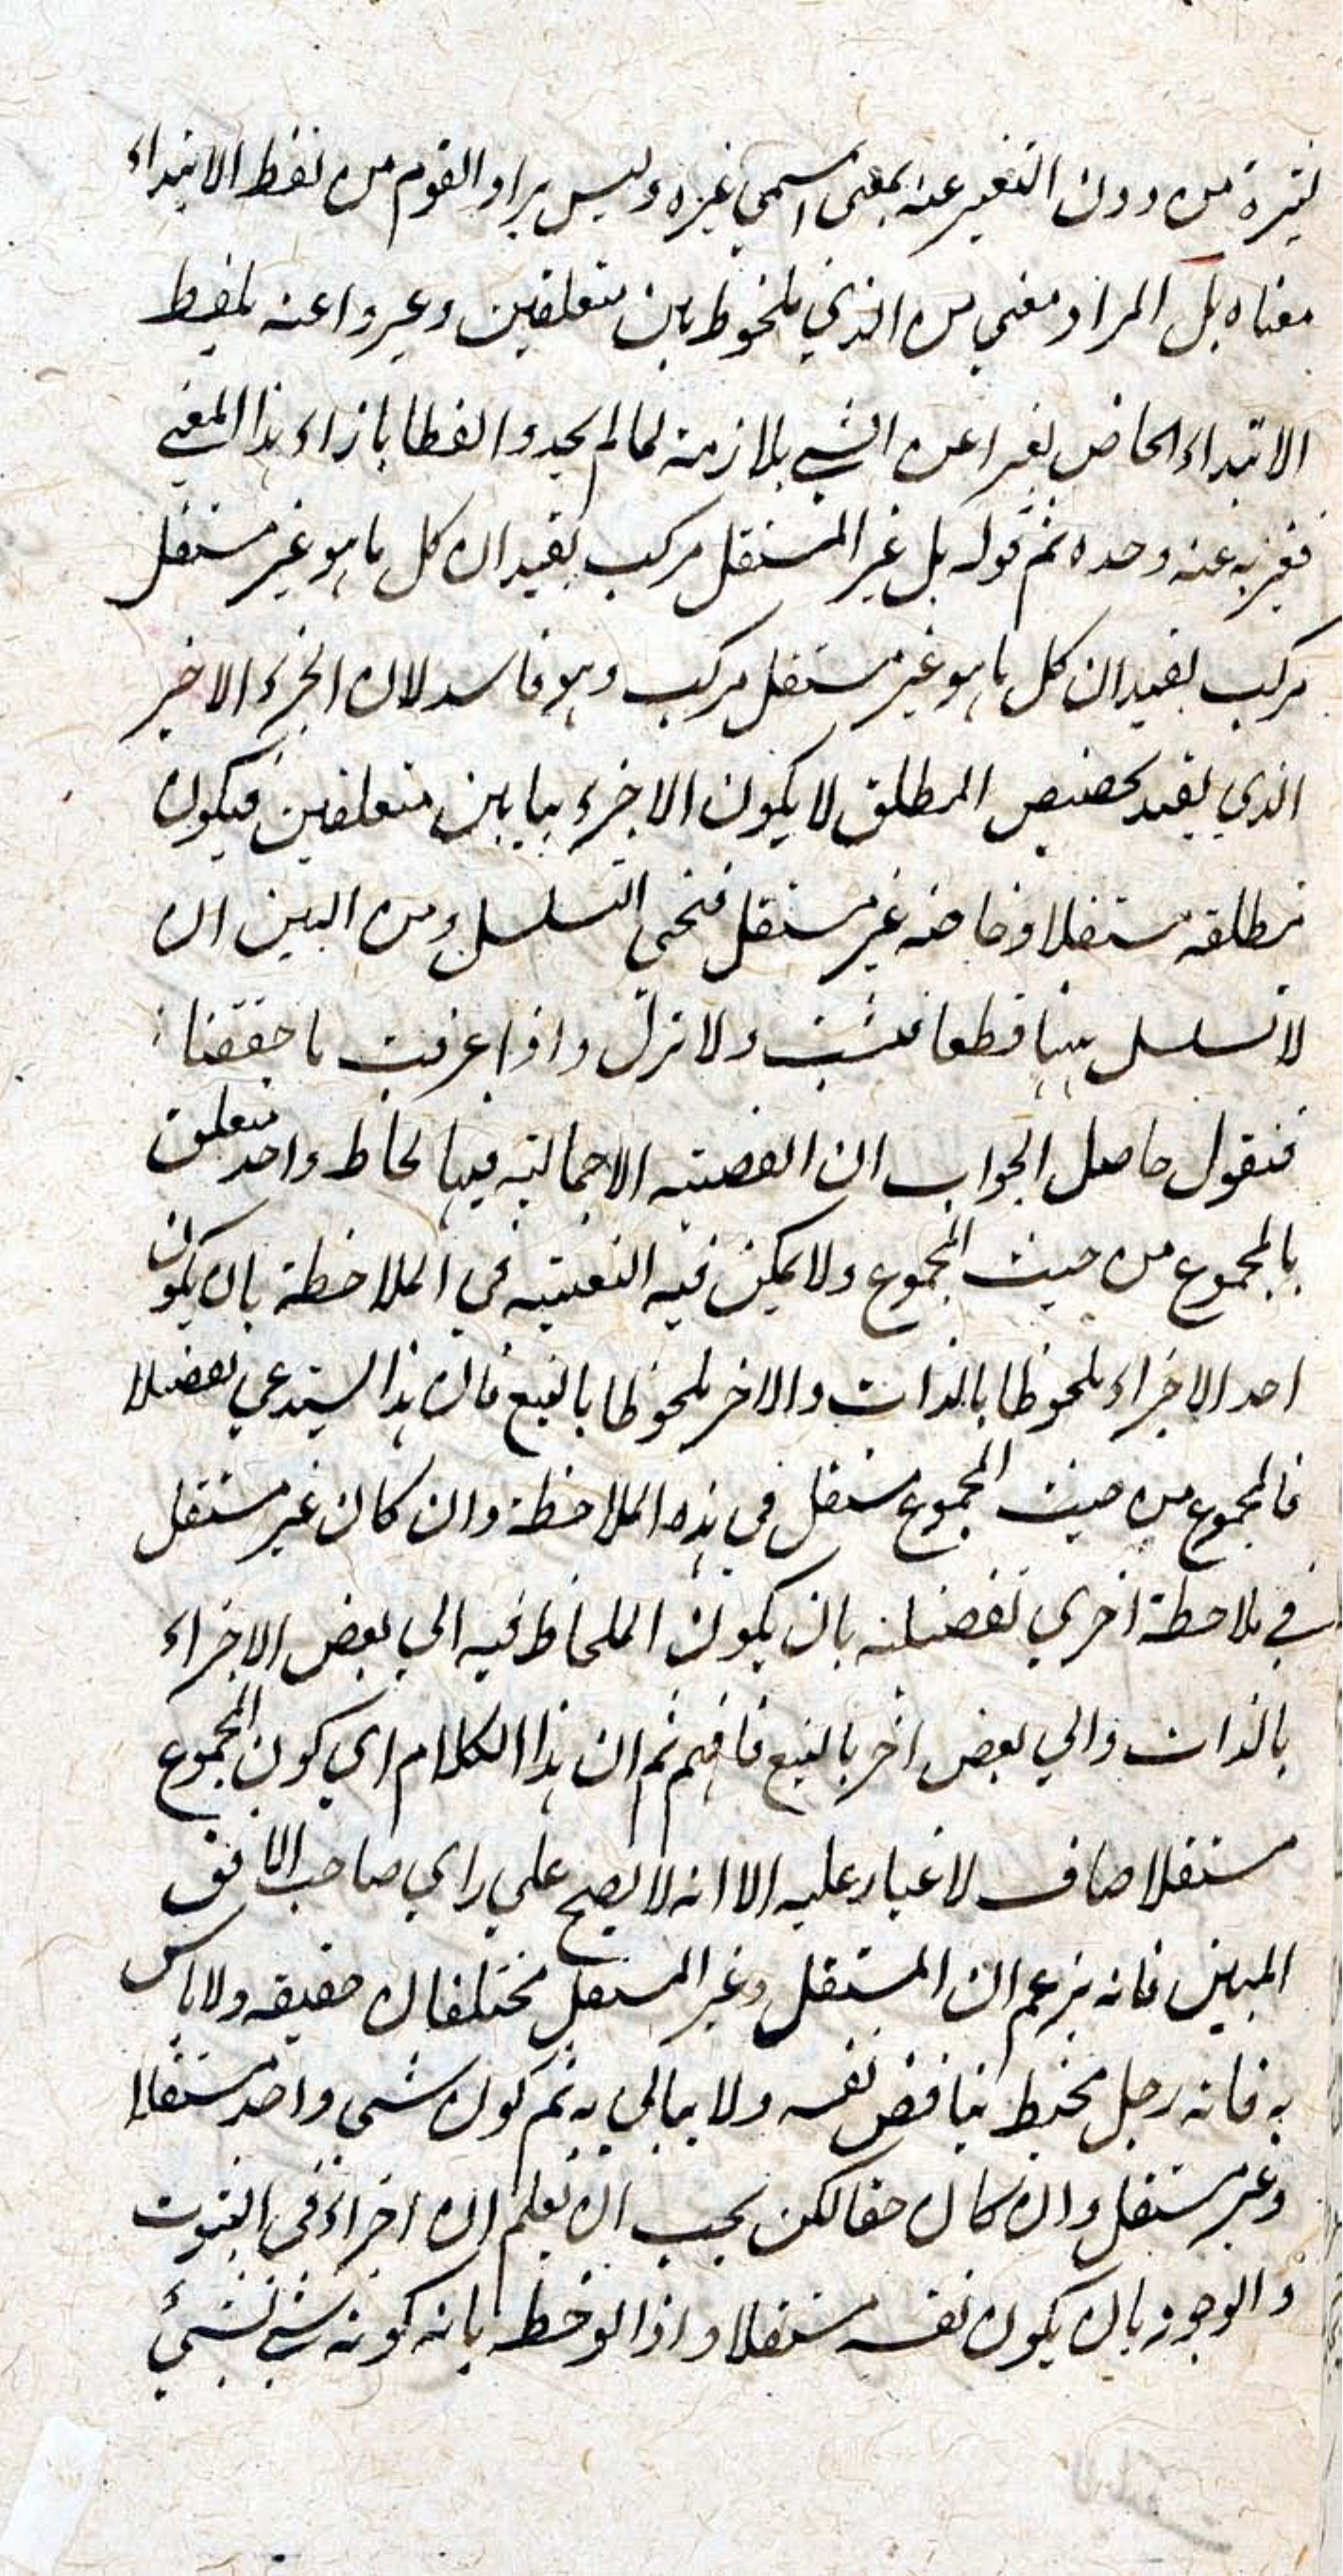 من دون التعبير عنه بمعنى اسمي غيره وليس مراد القوم من لفظ الابتداء
معناه بل المراد معنى من الذي ملحوظ بين متعلقين وعبروا عنه بلفظ
الابتداء الخاص تعبيرا عن الشي بلازمه لما لم يجدوا لفظا بازاء هذا المعنى
فعبر به عنه وحده ثم قوله بل غير المستقل مركب يفيد ان كل ما هو غير مستقل
مركب يفيد ان كل ما هو غير مستقل مركب وهو فاسد لان الجزء الاخير
الذي يفيد تخصيص المطلق لا يكون الا جزء ما بين متعلقين فيكون
مطلقه مستقلا وخاصه غير مستقل التسلسل ومن البين ان
لا تسلسل ههنا قطعا فتثبت ولا تزل واذا عرفت ما حققنا
فنقول حاصل الجواب ان القضية الاجمالية فيها لحاظ واحد متعلق
بالمجموع من حيث المجموع ولا يمكن فيه التبعية في الملاحظة بان يكون
احد الاجزاء ملحوظا بالذات والاخر ملحوظا بالتبع فان هذا يستدعي تفصيلا
فالمجموع من حيث المجموع مستقل في هذه الملاحظة وان كان غير مستقل
في ملاحظة اخري تفصيلية بان يكون الملحاظ فيه الي بعض الاجزاء
بالذات والي بعض اخر بالتبع فافهم ثم ان هذا الكلام اي كون المجموع
مستقلا صاف لا غبار عليه الا انه لا يصح علي راي صاحب الافق
المبين فانه يزعم ان المستقل وغير المستقل مختلفان حقيقه ولا باس
به فانه رجل مخبط يناقض نفسه ولا يبالي به ثم كون شي واحد مستقلا
وغير مستقل وان كان حقا لكن يجب ان تعلم ان اجراءه في الثبوت
والوجود بان يكون نفسه مستقلا واذا لوحظ بانه كونه شي لشيء